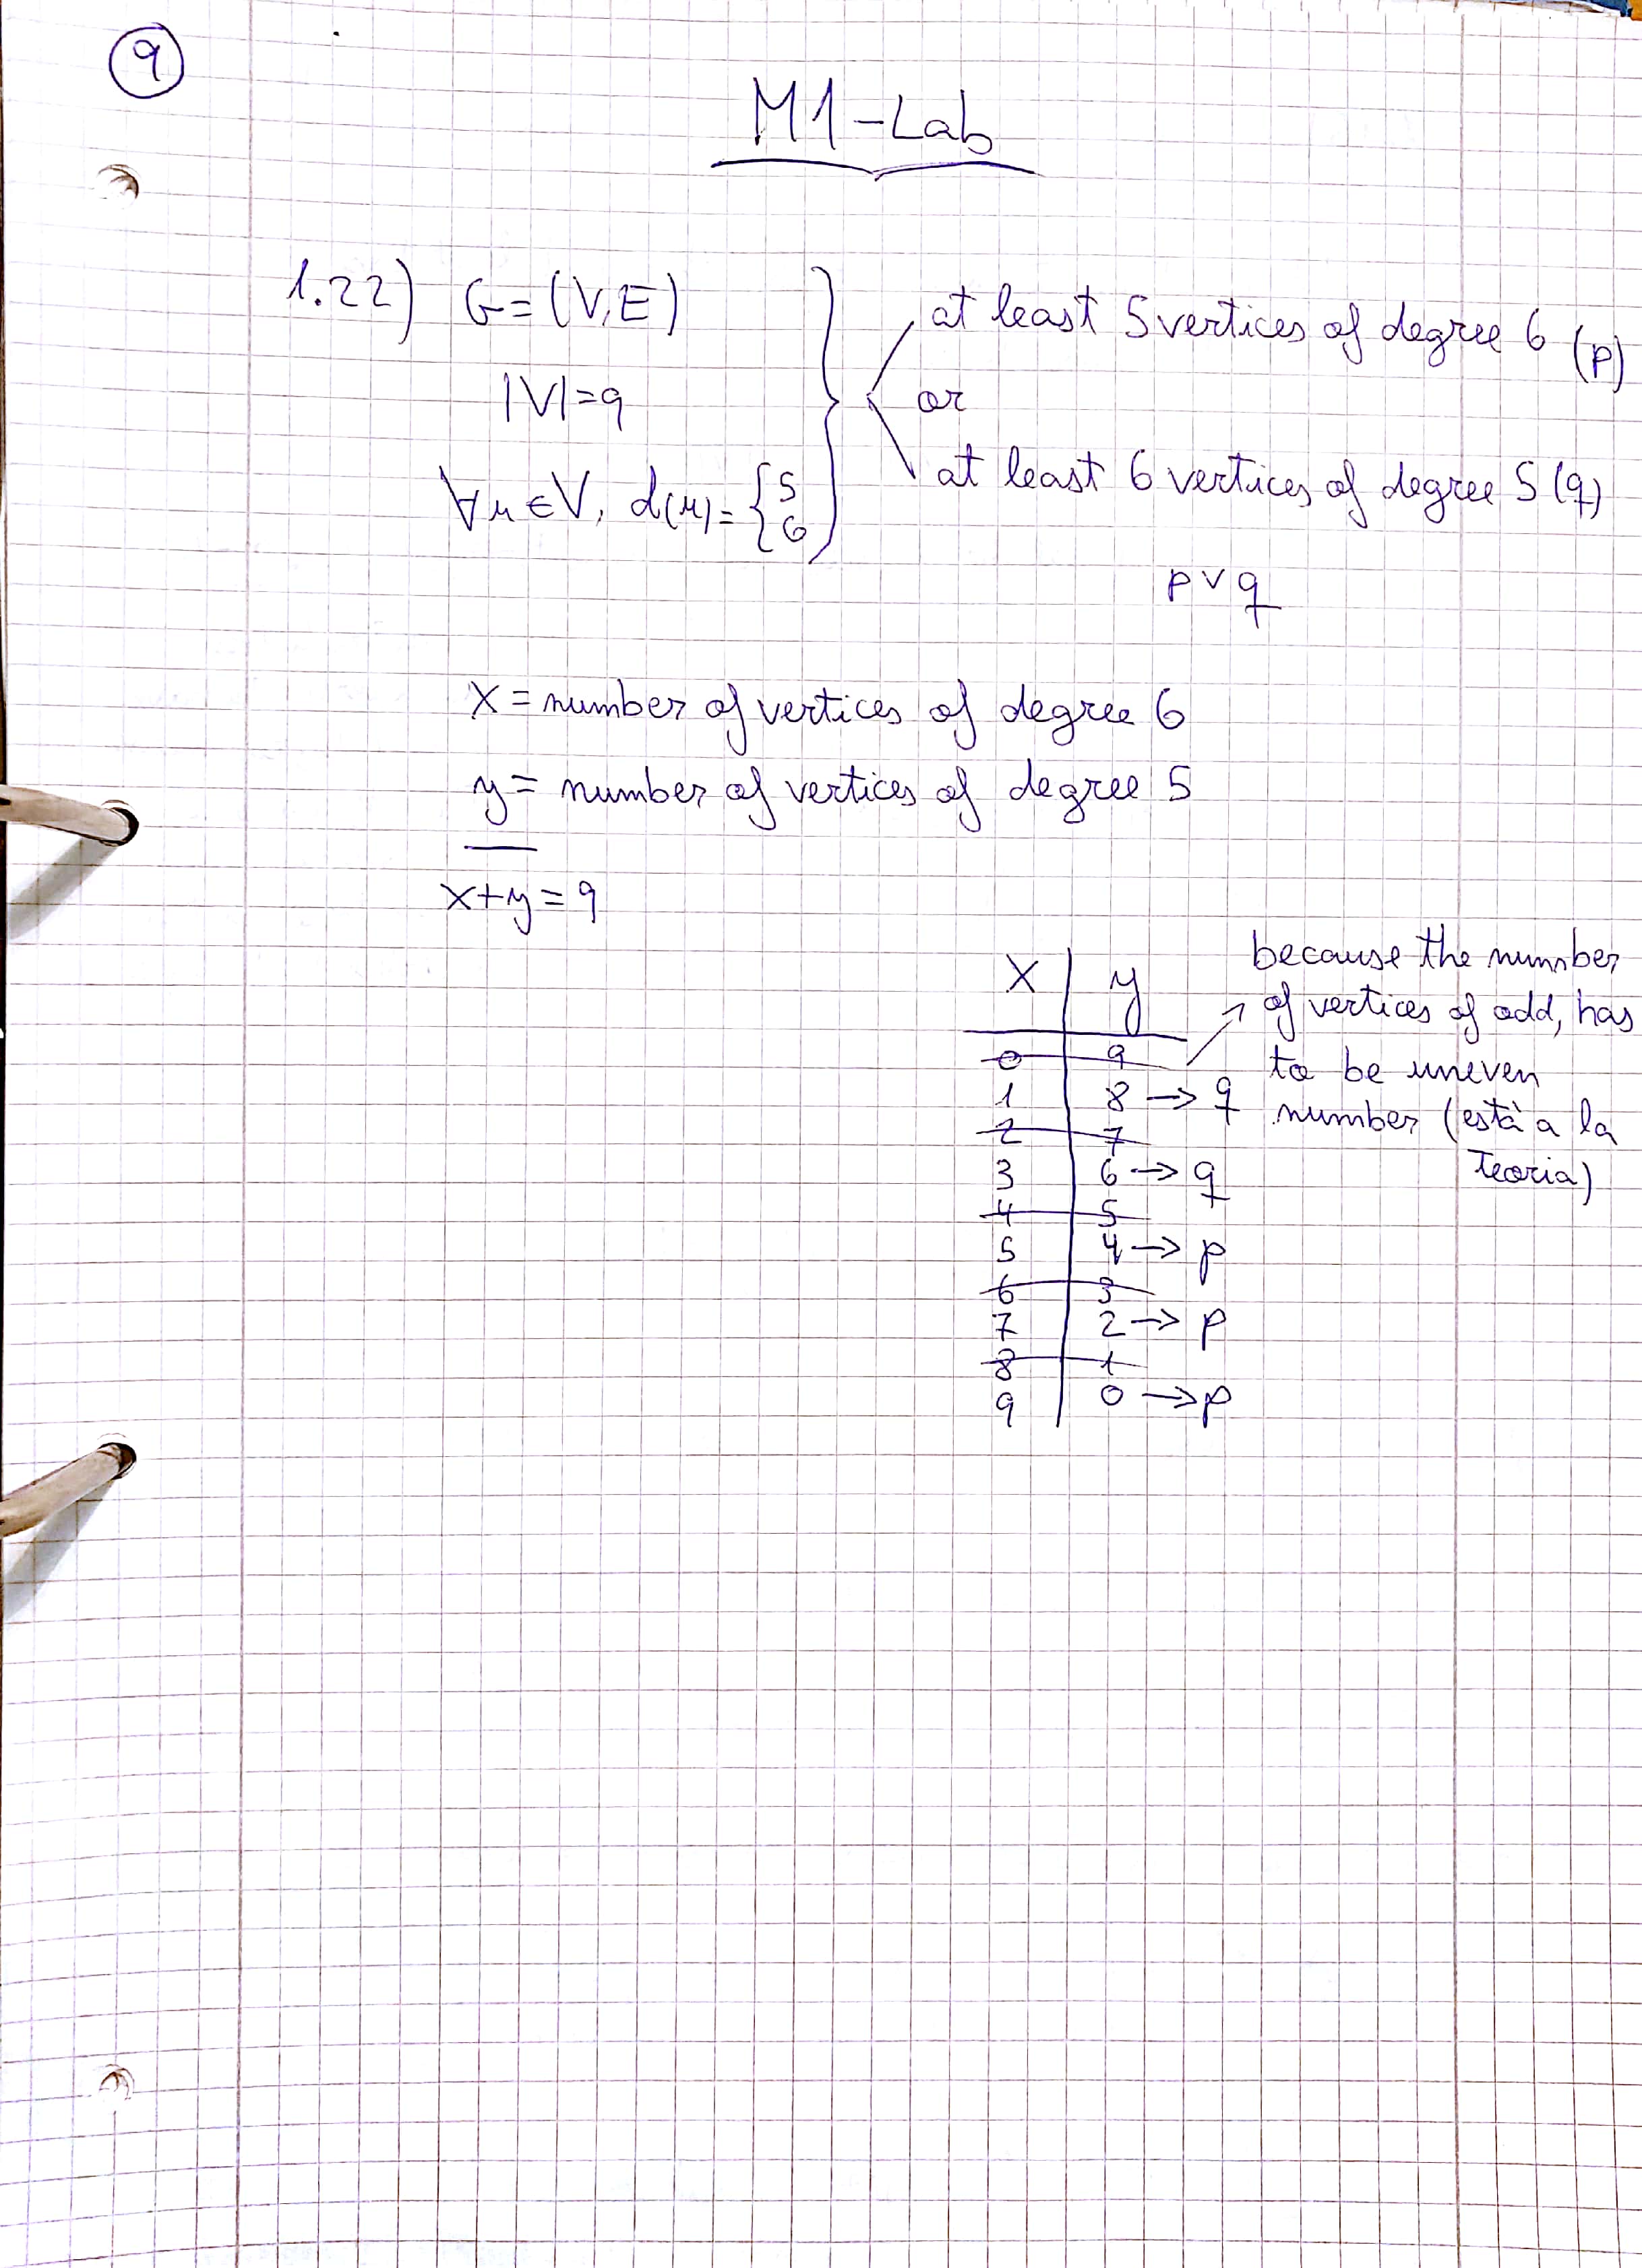 9
M1-Lab
1.22) G=(V,E)
|V|=9
∀u∈V, d(u)={5
6
at least 5 vertices of degree 6 (p)
or
at least 6 vertices of degree 5 (q)
p∨q
x = number of vertices of degree 6
y = number of vertices of degree 5
x+y=9
x | y
0 9
1 8 → q
2 7
3 6 → q
4 5
5 4 → p
6 3
7 2 → p
8 1
9 0 → p
because the number
of vertices of odd, has
to be uneven
number (està a la
teoria)